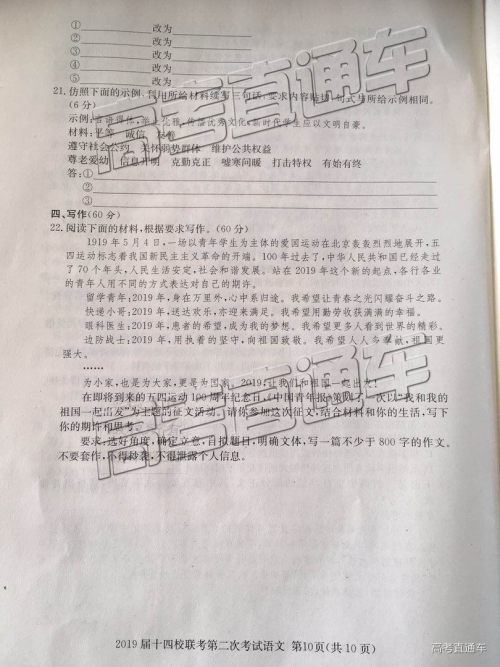 ①____________改为____________
②____________改为____________
③____________改为____________
④____________改为____________
⑤____________改为____________
21.仿照下面的示例,利用所给材料续写三句话,要求内容贴切,句式与所给示例相同。
(6分)
示例:言语得体,举止儒雅,传播优秀文化,新时代学生应以文明自豪。
材料:平等 诚信 友善
遵守社会公约 关怀弱势群体 维护公共权益
尊老爱幼 信息开明 克勤克正 嘘寒问暖 打击特权 有始有终
答:①
②
③
四、写作(60分)
22.阅读下面的材料,根据要求写作。(60分)
1919年5月4日,一场以青年学生为主体的爱国运动在北京轰轰烈烈地展开,五
四运动标志着我国新民主主义革命的开端。100年过去了,中华人民共和国已经走过
了70个年头,人民生活安定,社会和谐发展。站在2019年这个新的起点,各行各业
的青年人用不同的方式表达对自己的期许。
留学青年:2019年,身在万里外,心中系归途。我希望让青春之光闪耀奋斗之路。
快递小哥:2019年,送达欢乐,亦迎来满足。我希望用勤劳收获满满的幸福。
眼科医生:2019年,患者的希望,成为我的梦想。我希望更多人看到世界的精彩。
边防战士:2019年,用执着的坚守,向祖国致敬。我希望人人多奉献,祖国更
强大。
……
为小家,也是为大家,更是为国家。2019,让我们和祖国一起出发!
在即将到来的五四运动100周年纪念日,《中国青年报》策划了一次以“我和我的
祖国一起出发”为主题的征文活动。请你参加这次征文,结合材料和你的生活,写下
你的期许和思考。
要求:选好角度,确定立意,自拟题目,明确文体,写一篇不少于800字的作文。
不要套作,不得抄袭,不得泄露个人信息。
2019届十四校联考第二次考试语文 第10页(共10页)
高考直通车
高考直通车
高考直通车
高考直通车